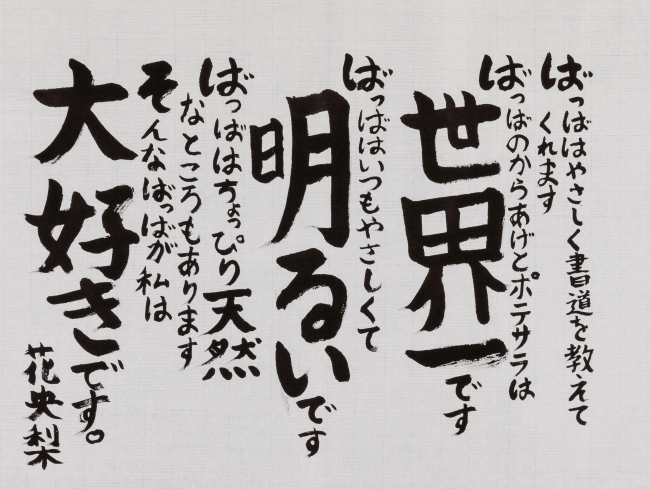 ばっばはやさしく書道を教えて
くれます
ばっばのからあげとポテサラは
世界一です
ばっばはいつもやさしくて
明るいです
ばっばはちょっぴり天然
なところもあります
そんなばっばが私は
大好きです。
花央梨